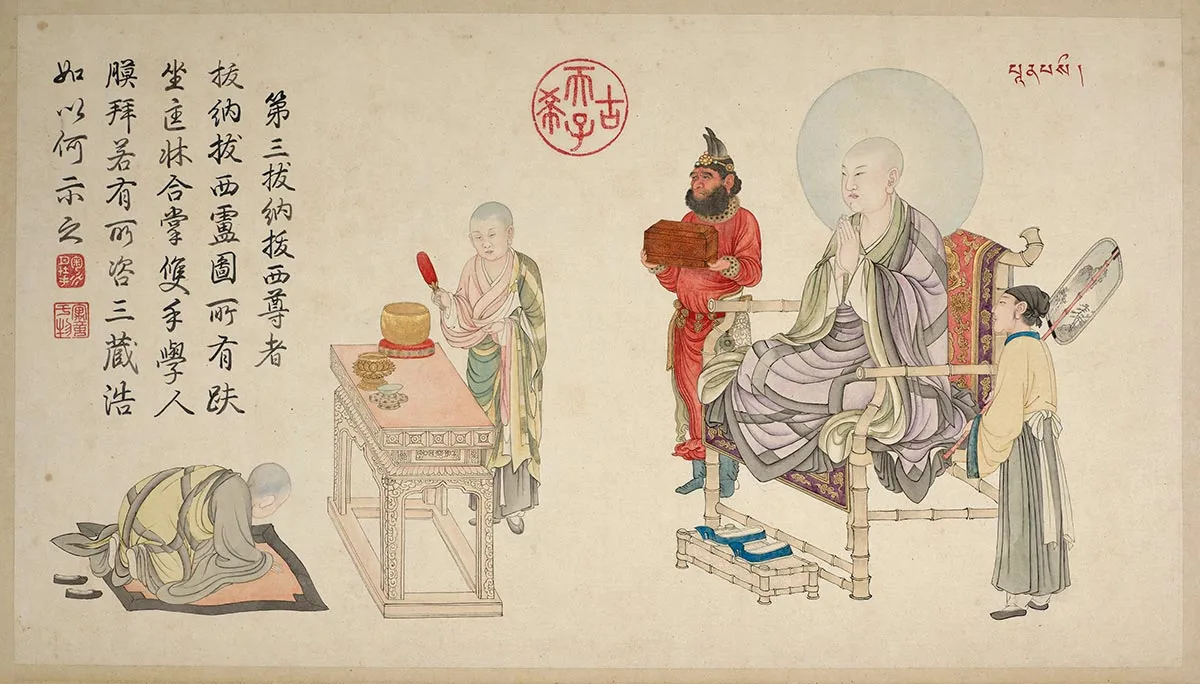 古希天子
第三拔納拔西尊者
拔納拔西盧圖所有趺
坐匡牀合掌雙手學人
膜拜若有所咨三藏浩
如以何示之